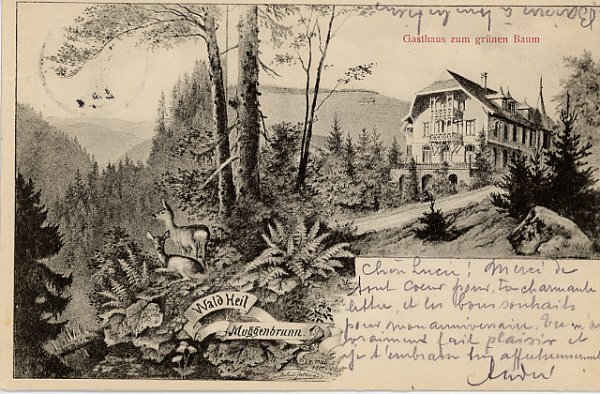 Gasthaus zum grünen Baum
Wald Heil
Muggenbrunn.
Chère Lucie! Merci de
tout Coeur pour ta charmante
lettre et les bons souhaits
pour mon anniversaire. Tu m'as
vraiment fait plaisir et
je t'embrasse très affectueusement
André